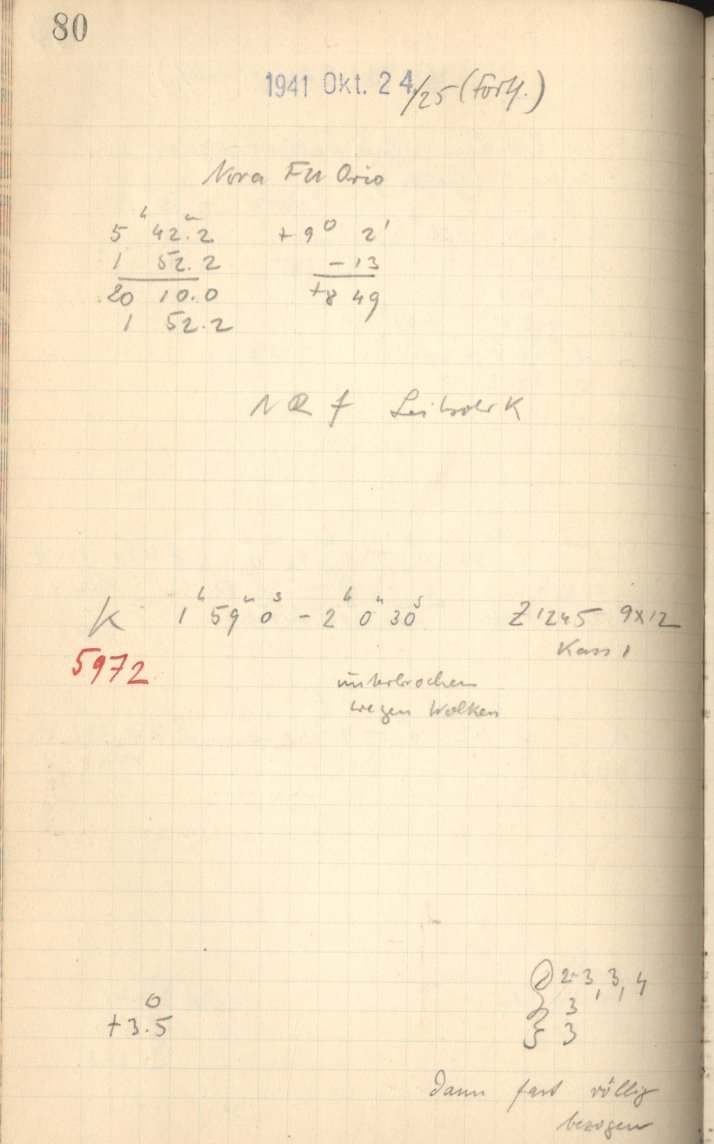 80
1941 Okt. 24/25 (Forts.)
Nova FU Orio
5ʰ 42.ᵐ2 +9° 2'
1 52.2 -13
20 10.0 +8 49
1 52.2
f
K 1ʰ 59ᵐ 0ˢ - 2ʰ 0ᵐ 30ˢ Z 1245 9x12
5972 Kass 1
unterbrochen
wegen Wolken
2-3, 3, 4
0 3
+3.5 3
dann fast völlig
bezogen